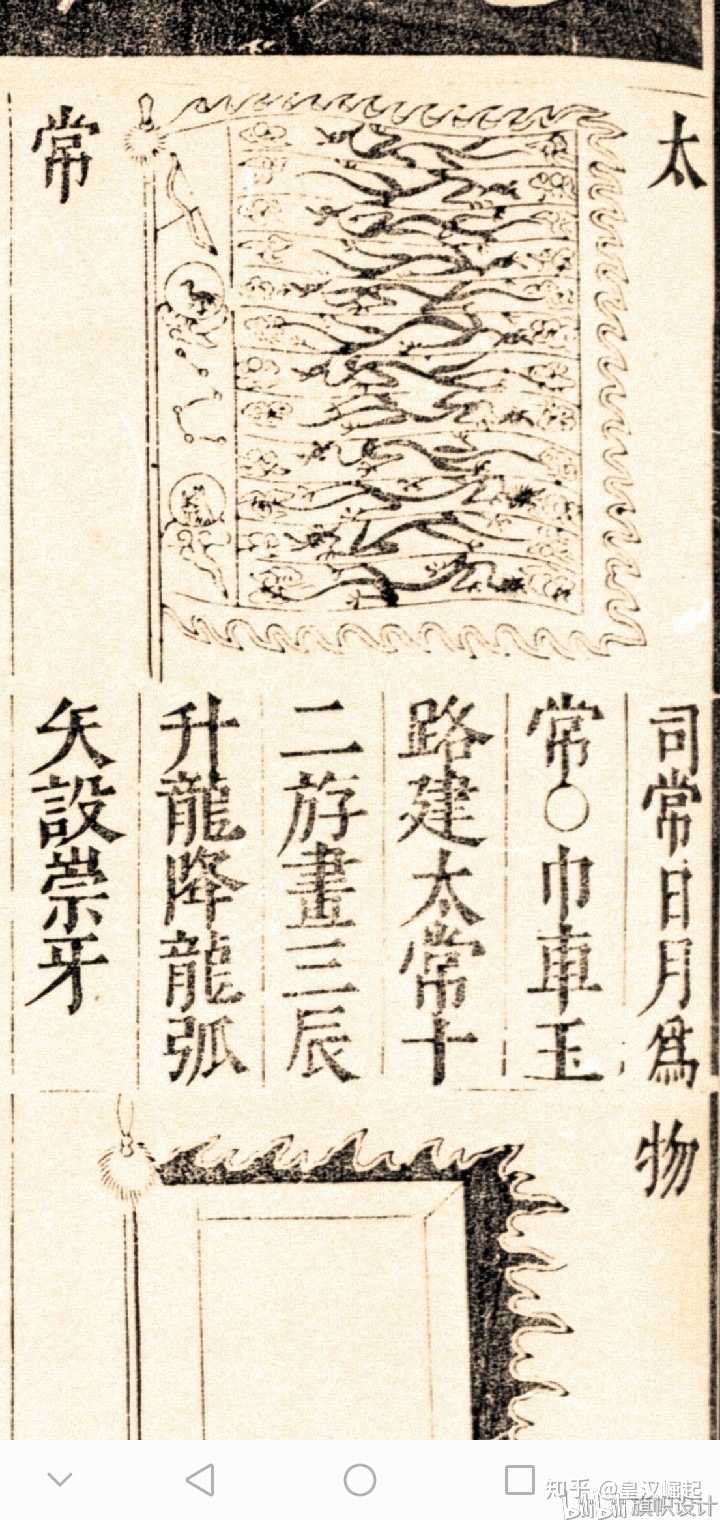 太常
司常日月爲
常〇巾車玉
路建太常十
二斿畫三辰
升龍降龍弧
矢設崇牙
物
知乎 @皇汉崛起
bilibili 旗帜设计